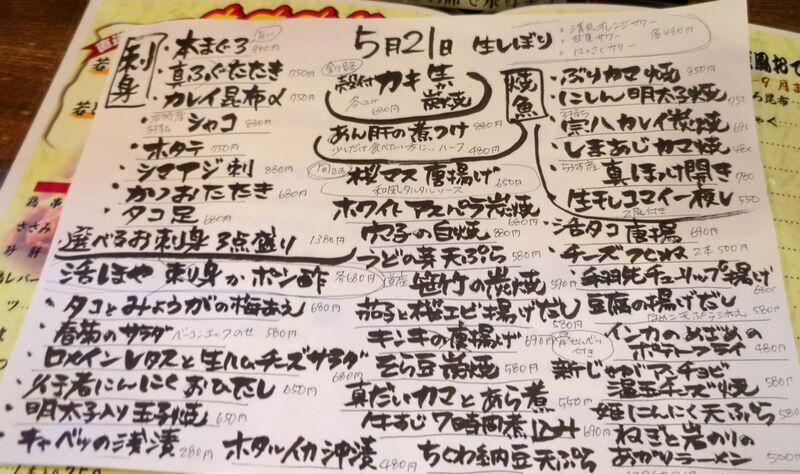 5月21日 生しぼり
・清見オレンジサワー
・甘夏サワー
・はっさくサワー
各480円
刺身
・本まぐろ 980円
・真ふぐたたき 750円
・カレイ昆布〆 750円
・シャコ 880円
・ホタテ 750円
・シマアジ刺 880円
・かつおたたき 680円
・タコ足 680円
選べるお刺身3点盛り 1380円
活ほや 刺身かポン酢 各680円
・タコとみょうがの梅あえ 680円
・春菊のサラダ ベーコンエッグのせ 580円
・ロメインレタスと生ハムチーズサラダ 680円
・行者にんにくおひたし 650円
・明太子入り玉子焼 650円
・キャベツの浅漬 280円
ホタルイカ沖漬 480円
殻付カキ 生か炭焼
各2ケ 680円
あん肝の煮つけ 880円
少しだけ食べたい方に…ハーフ 480円
桜マス唐揚げ 650円
和風タルタルソース
ホワイトアスパラ炭焼
穴子の白焼 880円
うどの芽天ぷら 580円
姫竹の炭焼 590円
茄子と桜エビ揚げだし 580円
キンキの唐揚げ 690円
そら豆炭焼 580円
真だいカマとあら煮 550円
牛すじ7時間煮込み 690円
ちくわ納豆天ぷら 580円
焼魚
・ぶりカマ焼 850円
・にしん明太子焼 750
・宗八カレイ炭焼 690
・しまあじカマ焼 680
・真ほっけ開き 780
生干しコマイ一夜干し 550
・活タコ唐揚 690円
・チーズつくね 2本500円
・手羽先チューリップ揚げ 680
豆腐の揚げだし 580円
インカのめざめの
ポテトフライ 480円
新じゃがアンチョビ
温玉チーズ焼 580円
姫にんにく天ぷら 580
ねぎと岩のりの
あがりラーメン 500円